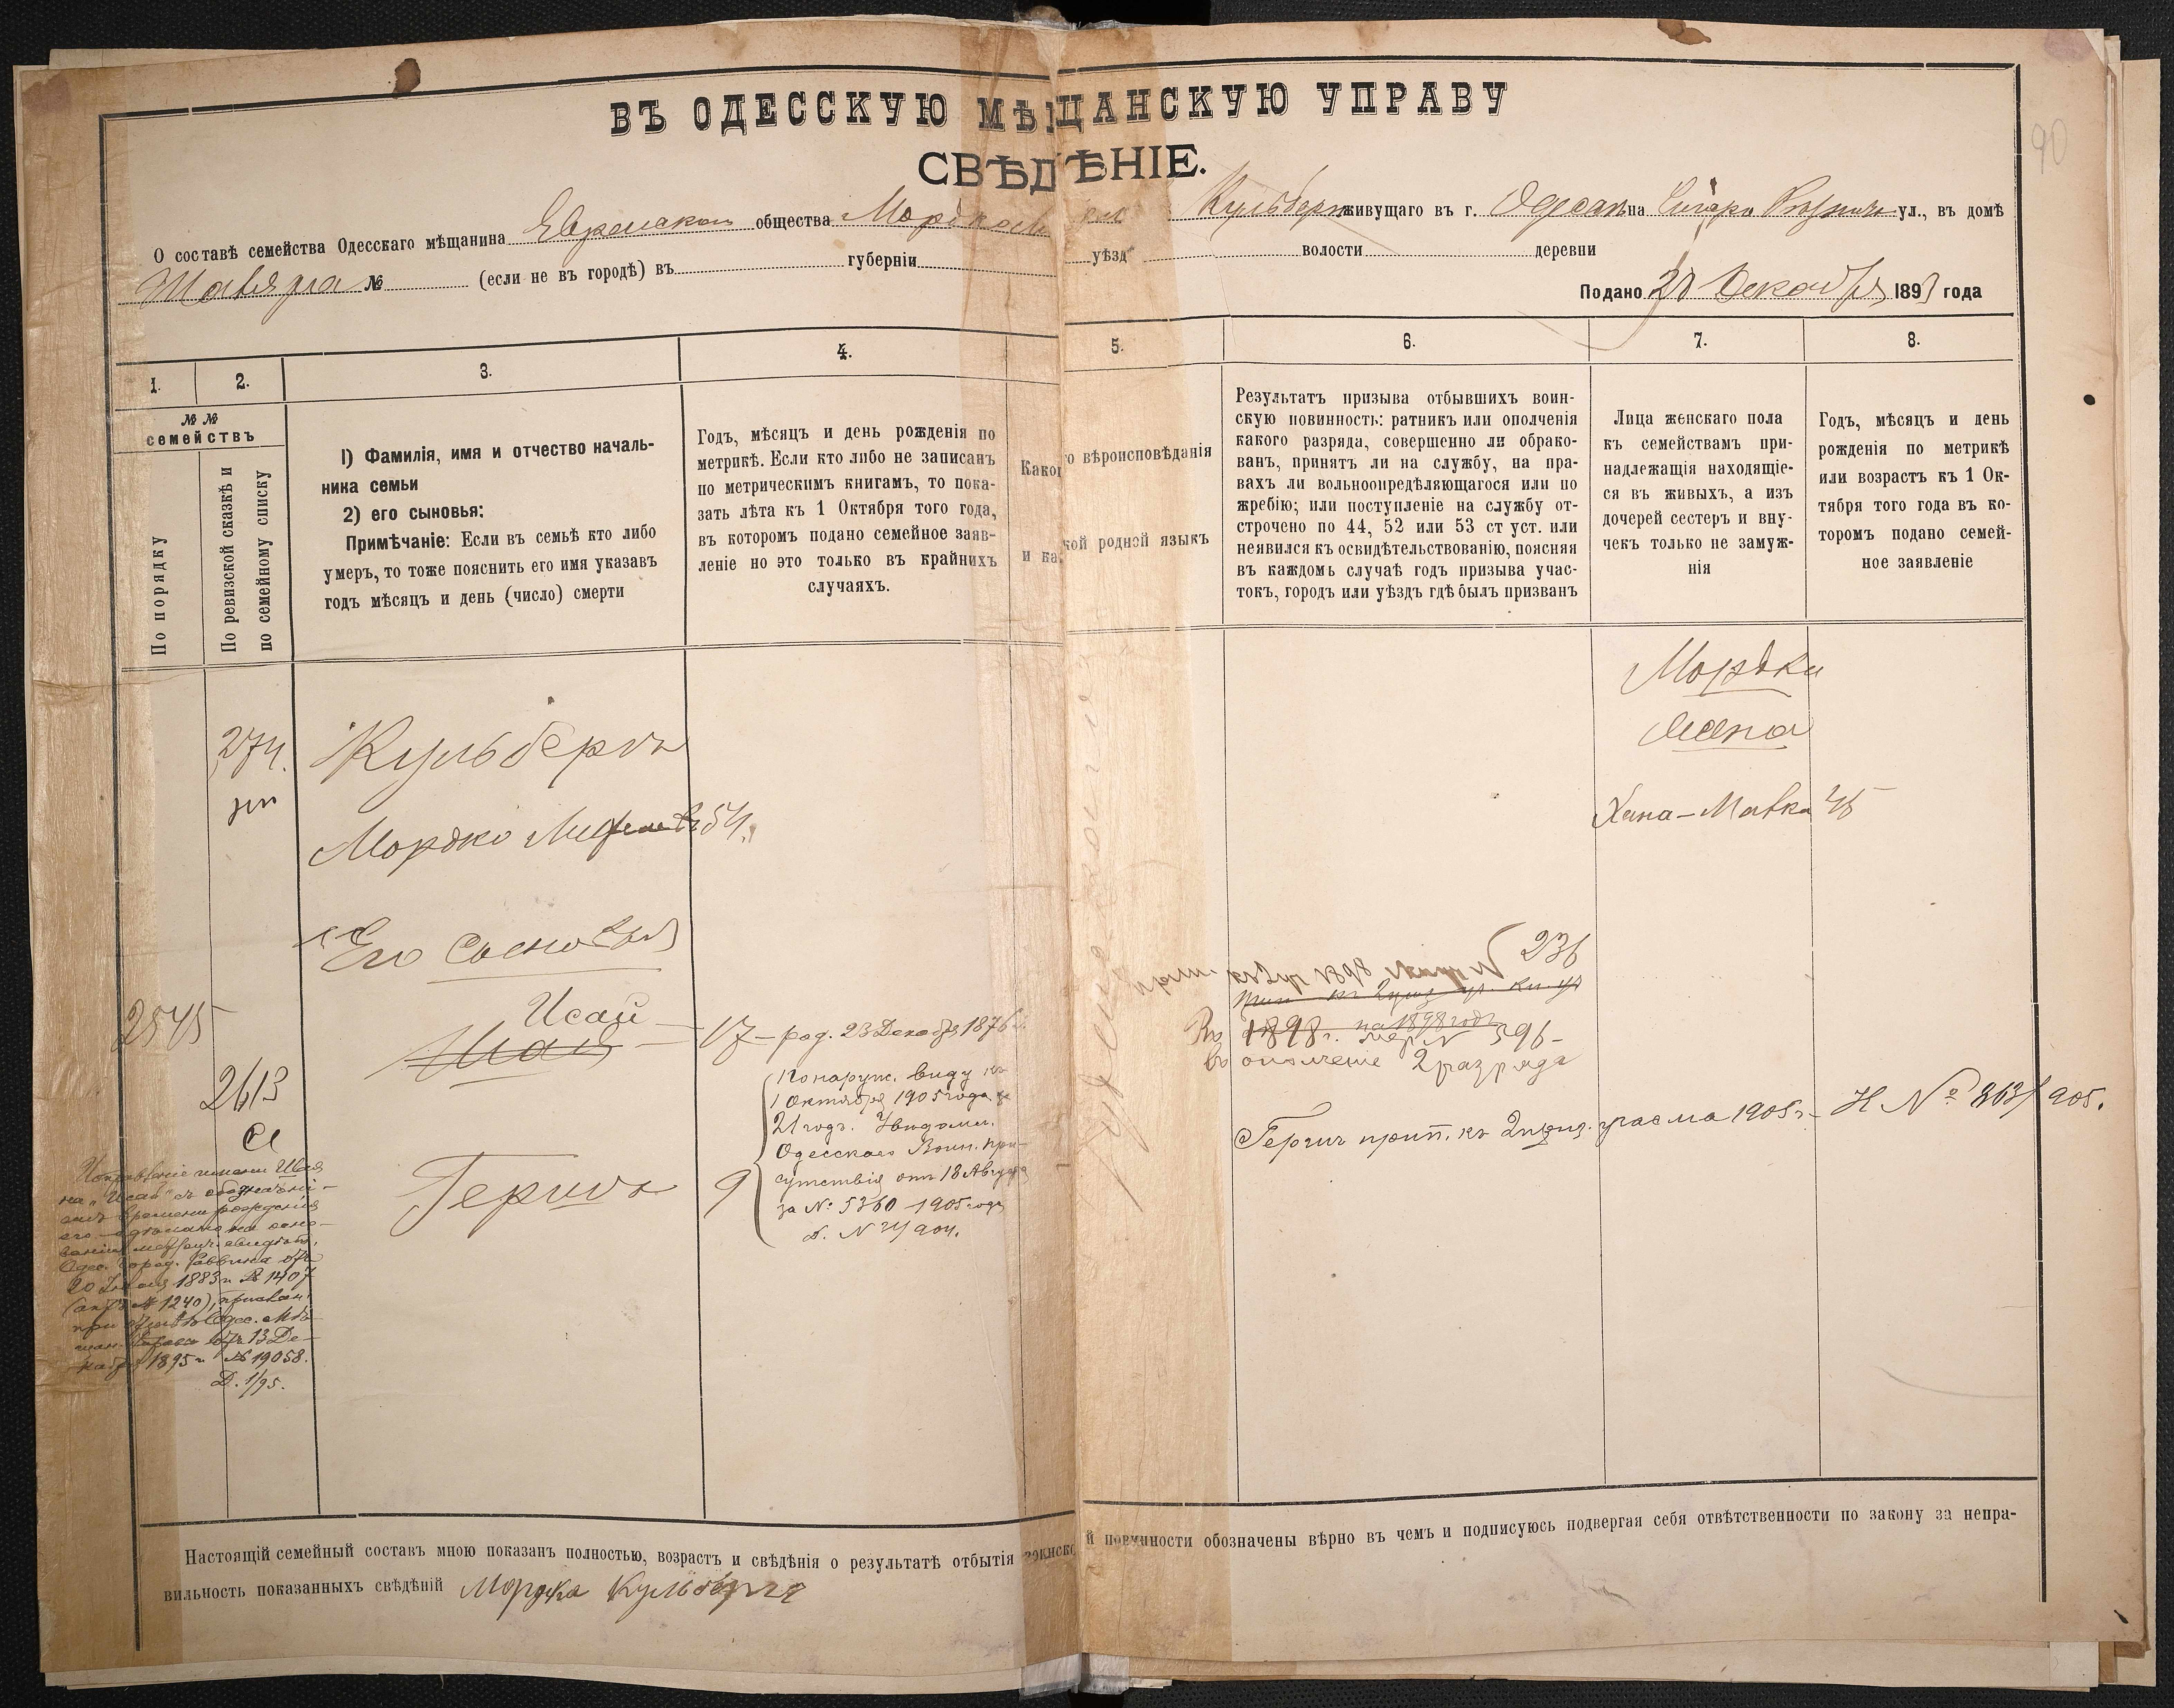 ВЪ ОДЕССКУЮ МѢЩАНСКУЮ УПРАВУ
СВѢДѢНІЕ.
90
О составѣ семейства Одесскаго мѣщанина Еврейскаго общества Мордко Кульберга живущаго въ г. Одессѣ на ул., въ домѣ
№ (если не въ городѣ) въ губерніи уѣзд волости деревни
Подано 20 Декабря 1893 года
1. 2. 3. 4. 5. 6. 7. 8.
№ №
семействъ
По порядку
По ревизской сказкѣ и
по семейному списку
1) Фамилія, имя и отчество началь-
ника семьи
2) его сыновья:
Примѣчаніе: Если въ семьѣ кто либо
умеръ, то тоже пояснить его имя указавъ
годъ мѣсяцъ и день (число) смерти
Годъ, мѣсяцъ и день рожденія по
метрикѣ. Если кто либо не записанъ
по метрическимъ книгамъ, то пока-
зать лѣта къ 1 Октября того года,
въ которомъ подано семейное заяв-
леніе но это только въ крайнихъ
случаяхъ.
Какого вѣроисповѣданія
и какой родной языкъ
Результатъ призыва отбывшихъ воин-
скую повинность: ратникъ или ополченія
какого разряда, совершенно ли обрако-
ванъ, принятъ ли на службу, на пра-
вахъ ли вольноопредѣляющагося или по
жребію; или поступленіе на службу от-
строчено по 44, 52 или 53 ст уст. или
неявился къ освидѣтельствованію, поясняя
въ каждомъ случаѣ годъ призыва учас-
токъ, городъ или уѣздъ гдѣ былъ призванъ
Лица женскаго пола
къ семействамъ при-
надлежащія находящіе-
ся въ живыхъ, а изъ
дочерей сестеръ и вну-
чекъ только не замуж-
нія
Годъ, мѣсяцъ и день
рожденія по метрикѣ
или возрастъ къ 1 Ок-
тября того года въ ко-
торомъ подано семей-
ное заявленіе
Мордки
жена
274. Кульбергъ
Мордко 54.
Хана-Матка 45
Его Сыновья
236
2545
Исай
Шая — 17 — род. 23 Декабря 1876 г.
1898 г. на 1898 годъ № 596 —
въ ополченіе 2 разряда
2613
По наруж. виду къ
1 Октября 1905 года
21 годъ. Увѣдомл.
Одесскаго Воин. при-
сутствія отъ 18 Августа
за № 5360 1905 года
Д. № 24/904.
Геригъ 9
Геригъ прип. къ 2 приз. участка 1905 г. — Н № 363/905.
Исправленіе имени Шая
на „Исай" съ обозначені-
емъ времени рожденія
его сдѣлано на осно-
ваніи метрич. свидѣт.
Одес. город. Раввина отъ
20 Іюля 1883 г. № 1407
(актъ № 1240), прислан.
при Одес. Мѣ-
щан. Управы отъ 13 Де-
кабря 1895 г. № 19058.
Д. 1/95.
Настоящій семейный составъ мною показанъ полностью, возрастъ и свѣдѣнія о результатѣ отбытія воинской повинности обозначены вѣрно въ чемъ и подписуюсь подвергая себя отвѣтственности по закону за непра-
вильность показанныхъ свѣдѣній Мордка Кульбергъ